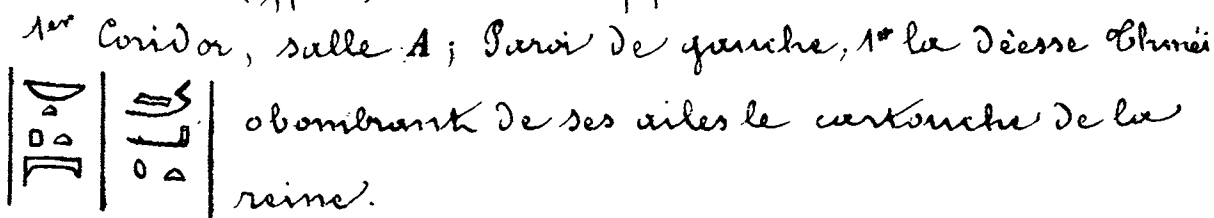 1er Coridor, salle A; Paroi de gauche, 1° la déesse Thméi
obombrant de ses ailes le cartouche de la
reine.